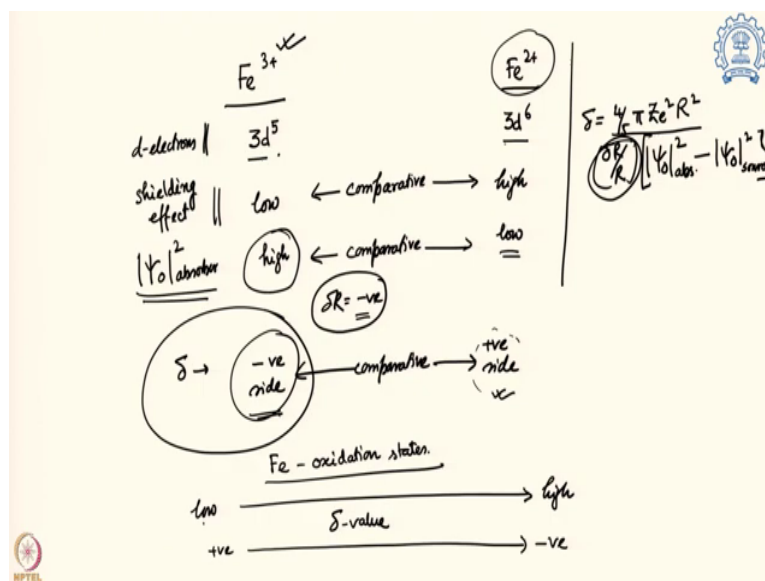 Fe³⁺ Fe²⁺
d-electrons 3d⁵ 3d⁶
shielding effect low ← comparative → high
|Ψ₀|² absorber high ← comparative → low
δR = -ve
δ → -ve side ← comparative → +ve side
Fe - oxidation states.
low → high
δ-value
+ve → -ve
δ = 4/5 π Ze² R²
δR/R [|Ψ₀|² abs. - |Ψ₀|²
NPTEL